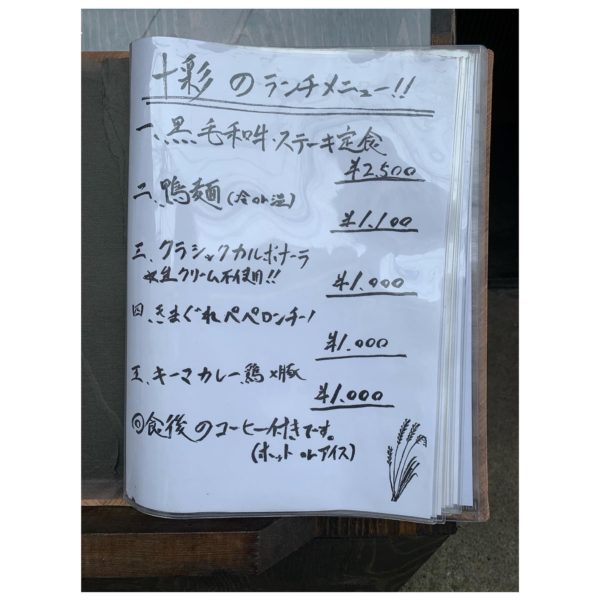 十彩のランチメニュー!!
一、黒毛和牛ステーキ定食
¥2,500
二、鴨麺(冷or温)
¥1,100
三、クラシックカルボナーラ
※生クリーム不使用!!
¥1,000
四、きまぐれペペロンチーノ
¥1,000
五、キーマカレー鶏×豚
¥1,000
◎食後のコーヒー付きです。
(ホット or アイス)